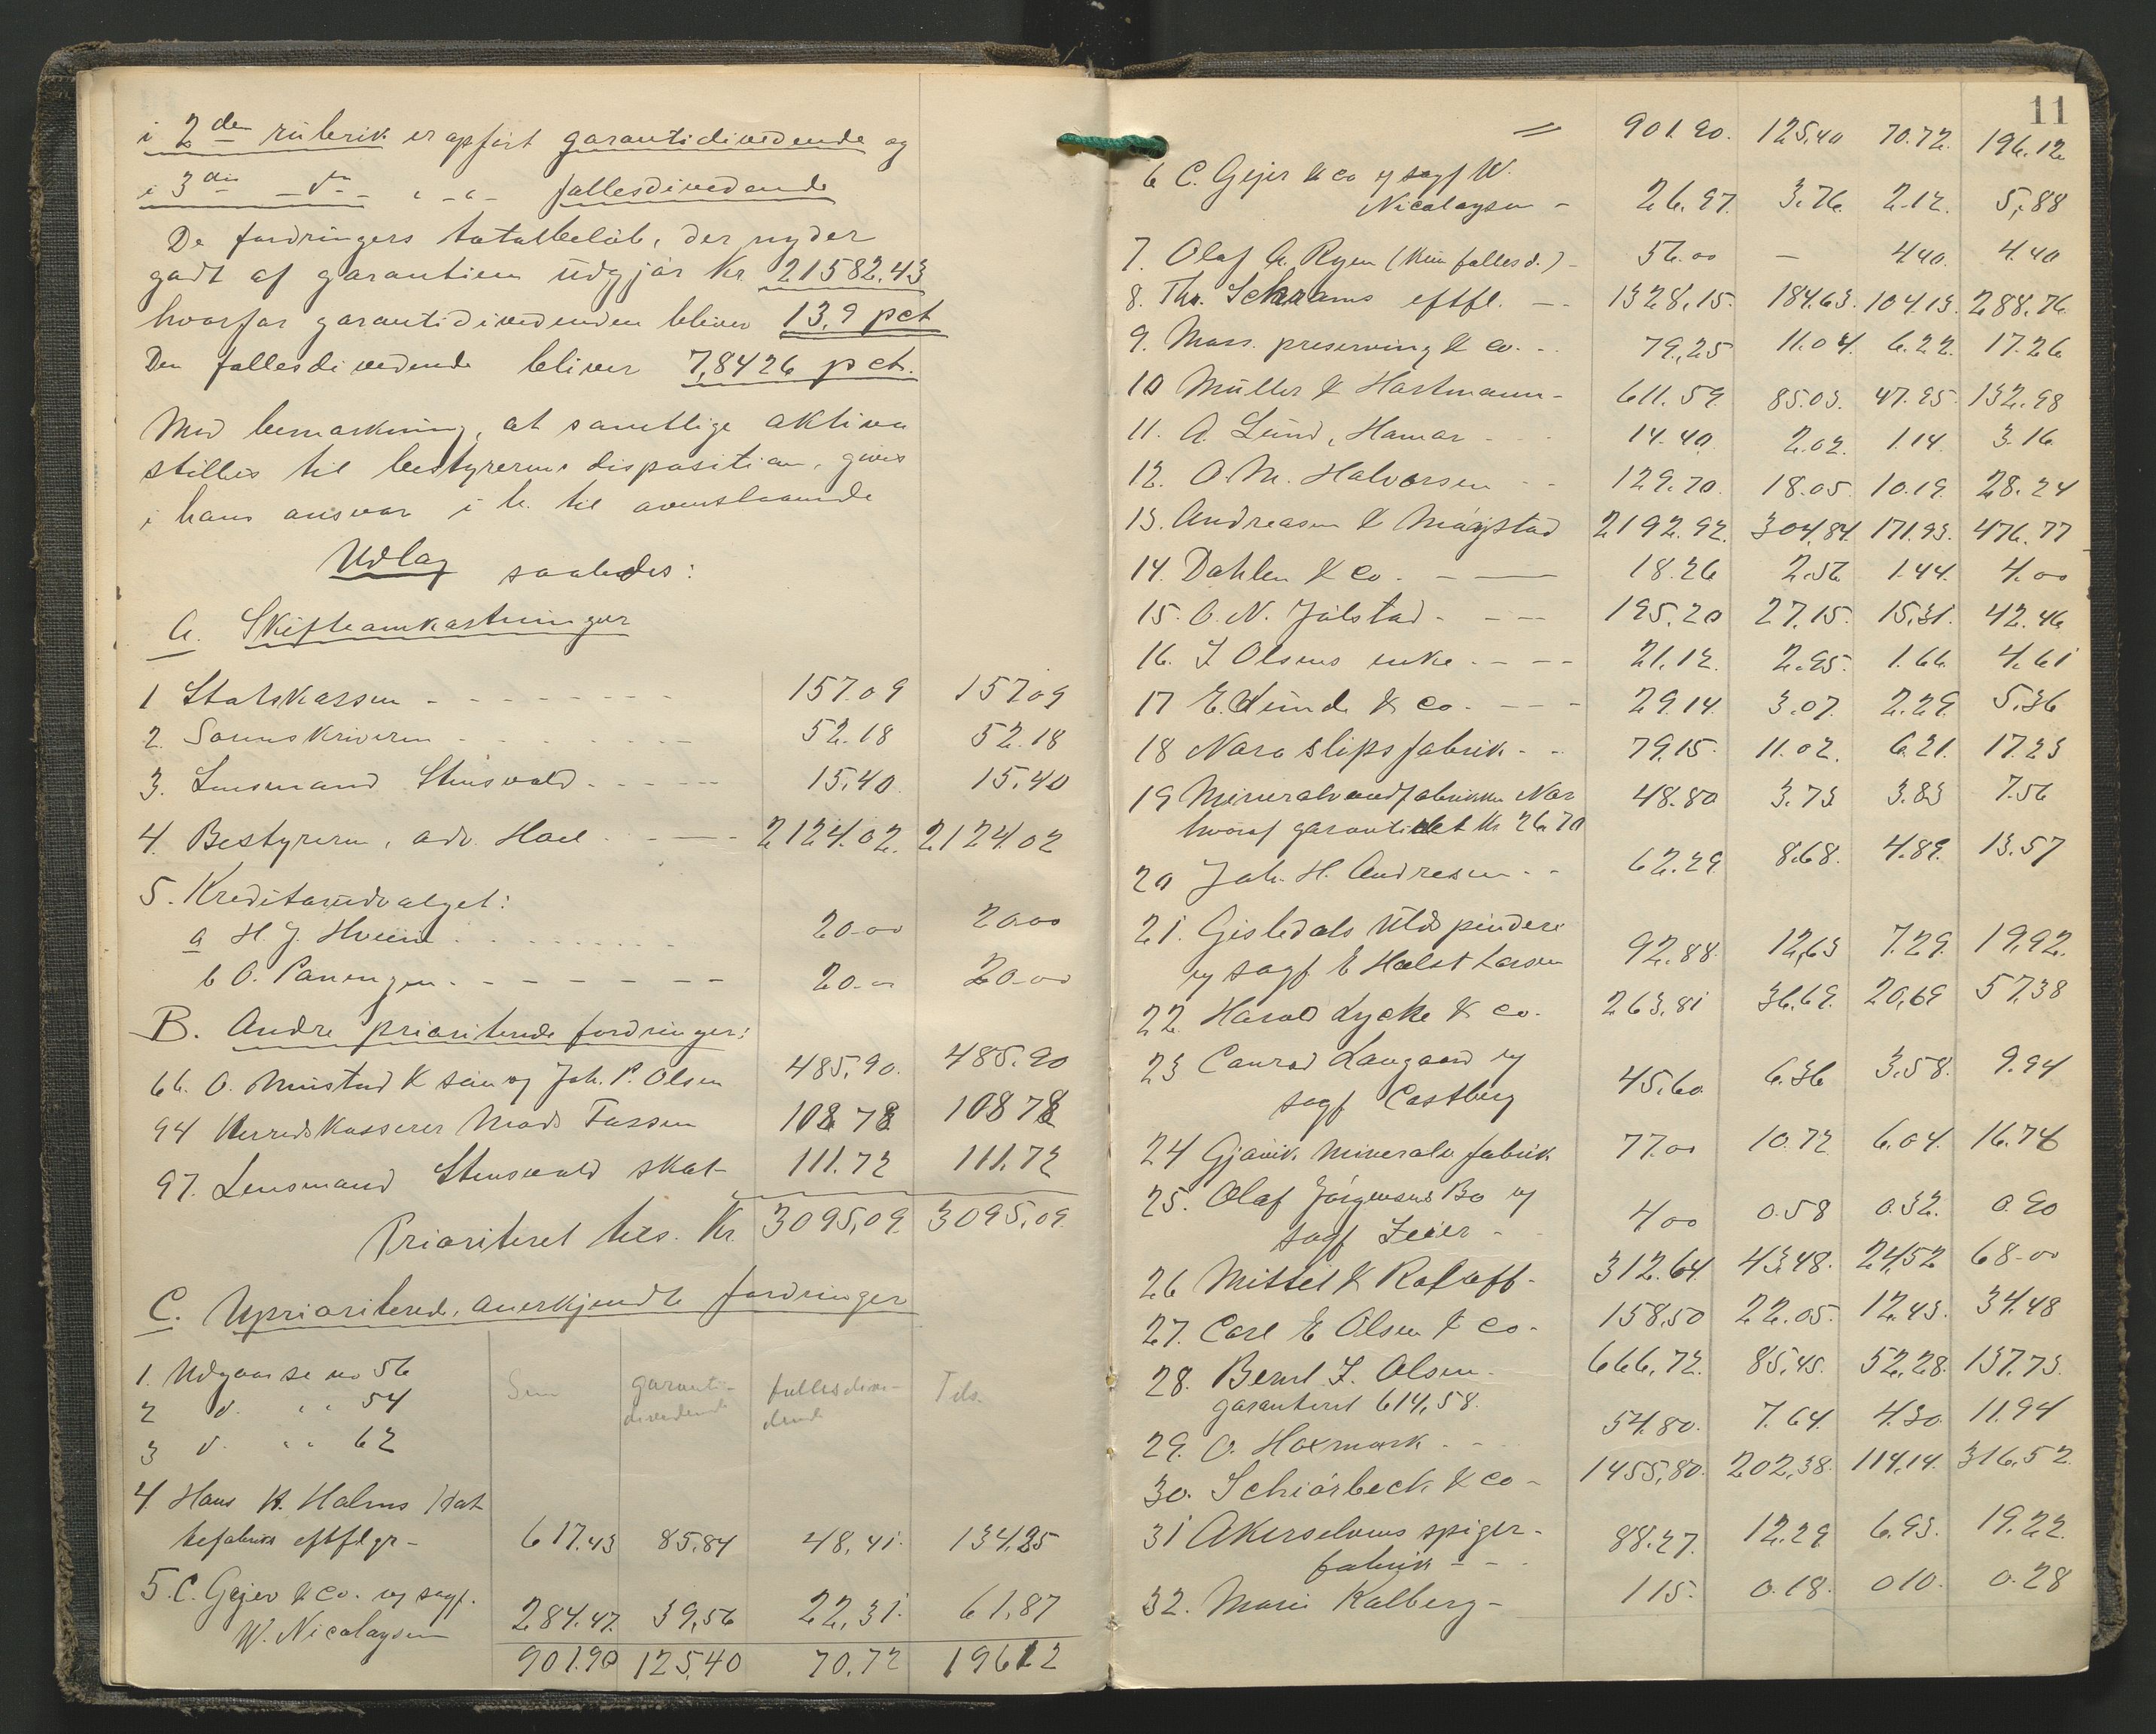 i 2den rubrik er opført garantidividende og
i 3die -v- " -"- fællesdividende
De fordringers totalbeløb, der nyder
godt af garantien udgjør Kr. 21582.43
hvorfor garantidividenden bliver 13,9 pct
Den fællesdividende bliver 7,8426 pct.
Med bemærkning, at samtlige aktiva
stilles til bestyrerens disposition, gives
i hans ansvar i h. til ovenstaaende
Udlæg saaledes:
A. Skifteomkostninger
1 Statskassen - 157.09 157.09
2. Sorenskriveren - 52.18 52.18
3. Lensmand Stensvold - 15.40 15.40
4. Bestyreren, adv. Hoel - 2124.02. 2124.02
5. Kreditorudvalget:
a H. J. Hveem - 20.00 20.00
b O. - 20.- 20.00
B. Andre prioriterede fordringer:
66. O. Mustad & søn og Joh. P. Olsen 485.90. 485.90
94 Herredskasserer Mads Fossen 108 78 108 78
97. Lensmand Stensvold skat - 111.72 111.72
Prioriteret tils. Kr. 3095,09 3095,09
C. Uprioriterede, anerkjendte fordringer
1. Udgaar se no 56
2 v. " 54
3 v. " 62
Sum garanti-dividende fællesdivi-dende Tils.
4. Hans H. Holms Hat
tefabriks eftflgr - 617.43 85.84 48,41. 134,25
5. C. Gejer & Co. og sagf.
W. Nicolaysen 284.47. 39,56 22,31. 61.87
901.90 125,40 70,72 196 12
11
= 901.90. 125,40 70.72. 196.12
6 C. Gejer & Co og sagf W.
Nicolaysen - 26.97. 3.76. 2.12. 5,88
7. Olaf A. Ryen (Kun fællesd.) - 56.00 - 4.40. 4.40
8. Ths. Schrams eftfl. - 1328,15. 184.63. 104.13. 288.76.
9. Moss. preserving & Co. - 79,25 11.04. 6.22. 17.26
10 Müller & Hartmann - 611.59. 85.03. 47.95. 132.98
11. A. Lund, Hamar - 14.40. 2.02. 1.14. 3.16
12. O. M. Halvorsen - 129.70. 18.05. 10.19. 28.24
13. Andreasen & Magstad 2192.92. 304,84. 171.93. 476.77
14. Dahlen & Co. - 18.26 2.56. 1.44. 4.00
15. O. N. Jølstad - 195.20 27.15. 15.31. 42.46
16. J Olsens enke - 21.12. 2.95. 1.66. 4.61
17 E. Sunde & Co. - 29.14. 3.07. 2.29. 5.36
18 Nora slips fabrik - 79.15. 11.02. 6.21. 17.23
19 Mineralvandfabrikken Nor 48.80 3.73. 3.83 7.56
hvoraf garantidet Kr. 26.70
20 Joh. H. Andresen - 62.29 8.68. 4.89. 13.57
21. Gisledals Uldspinderi
og sagf E Holst Larsen 92.88. 12,63 7.29. 19,92.
22. Harald Lycke & Co. 263.81 36,69. 20,69 57,38
23 Conrad Langaard og
sagf Castberg 45.60. 6.36 3.58. 9.94
24 Gjøvik Mineralv fabrik 77.00 10.72. 6.04. 16.76
25. Olaf Jørgensens Bo og
sagf Zeier - 4 00 0.58 0.32. 0.90
26 Mittet & - 312.64. 43,48. 24,52 68.00
27. Carl E Olsen & Co. 158.50 22.05. 12,43. 34.48
28. Bernt Z. Olsen. 666,72. 85,45. 52,28. 137.73.
garanteret 614,58.
29. O. Hoxmark - 54.80. 7.64. 4.30. 11.94
30. Schiørbeck & Co - 1455,80. 202,38. 114,14. 316,52.
31 Akerselvens spiger-
fabrik - 88.27. 12.29. 6.93. 19.22.
32. Marie Kalberg - 1 15. 0.18. 0 10. 0.28